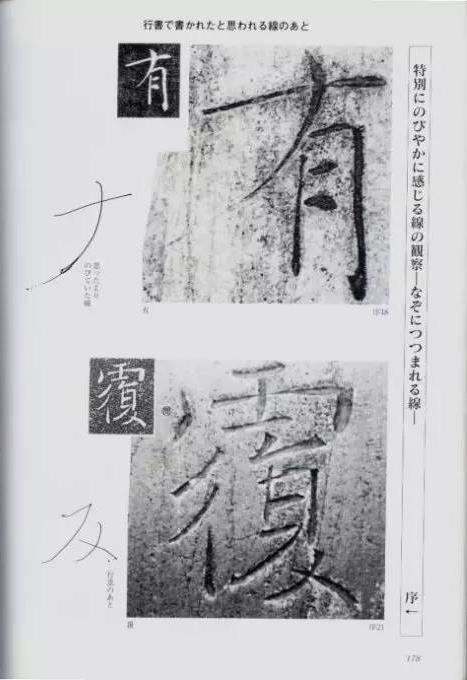 行書で書かれたと思われる線のあと
特別にのびやかに感じる線の観察—なぞにつつまれる線—
序←
有
有
思ったより
のびていた線
有
序18
霞
行意のあと
序21
178